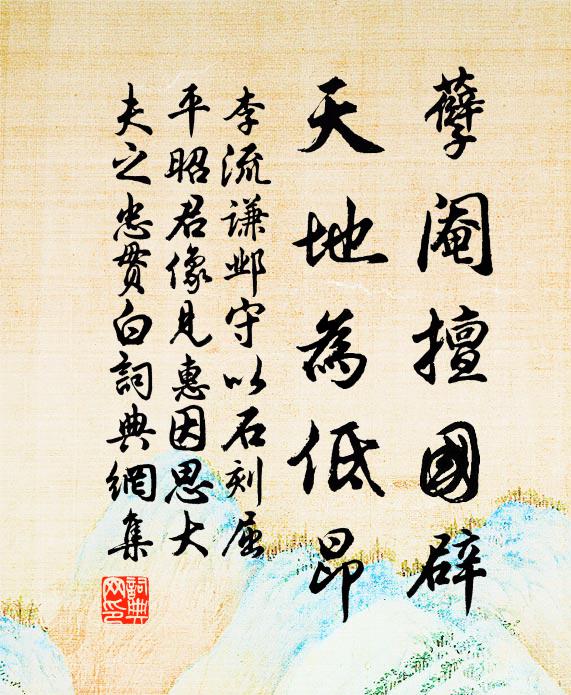 孽阉擅國辟
天地為低昂
李流謙邺守以石刻屈
平昭君像見惠因思大
夫之忠贯白詞典網集
詞典
网印